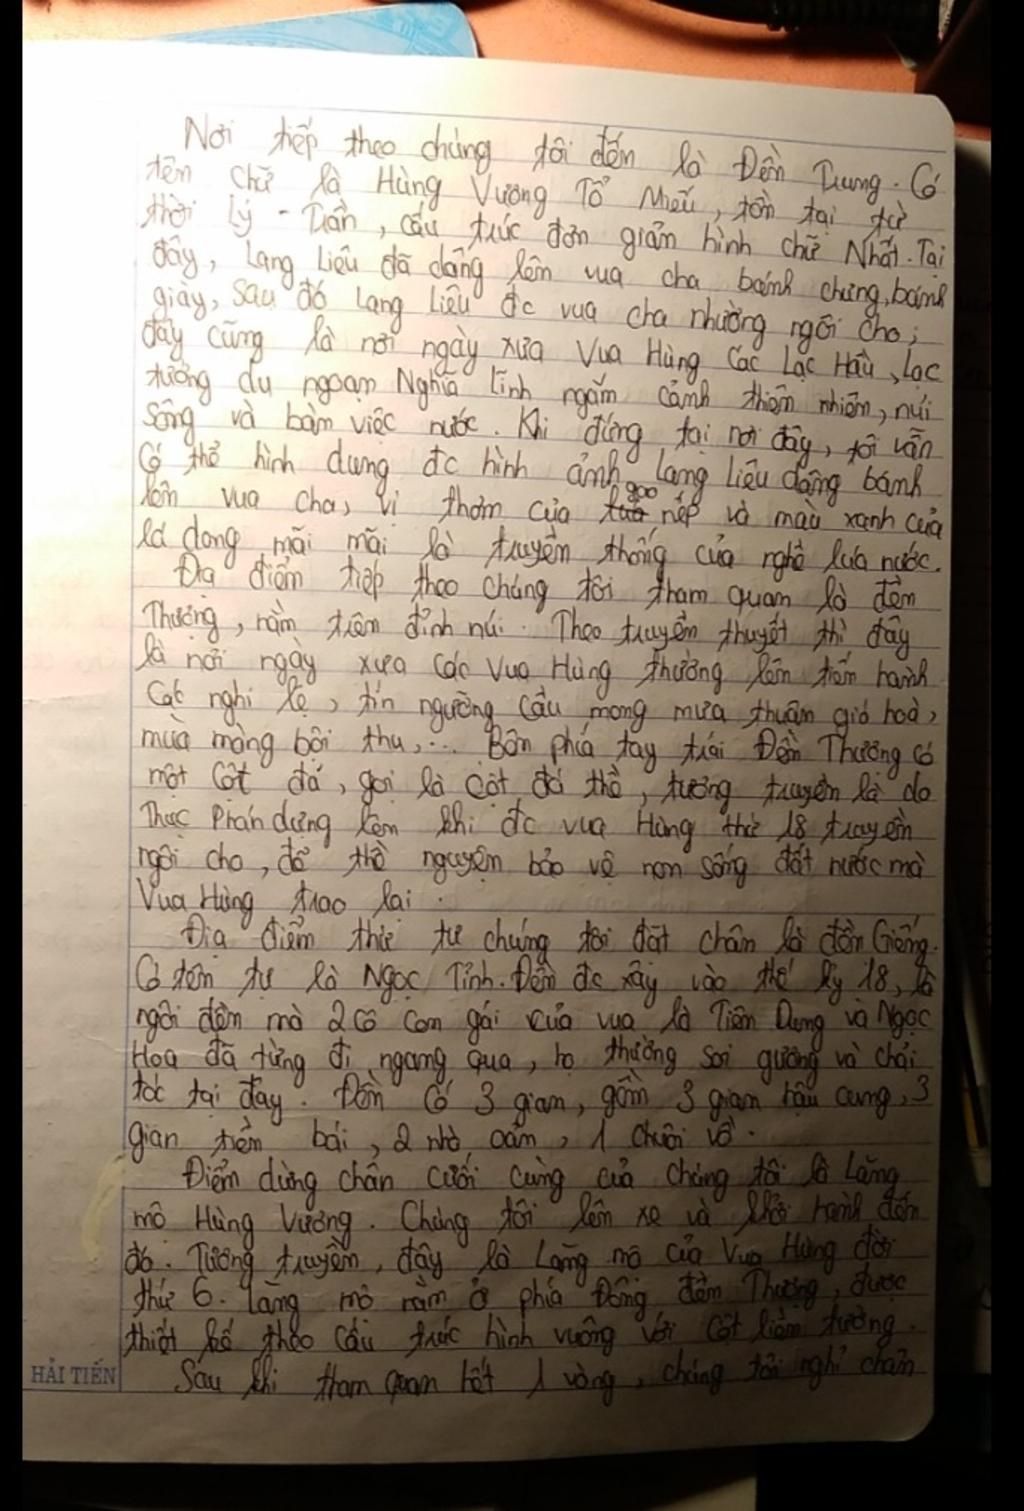 Nơi tiếp theo chúng tôi đến là Đền Trung. Có
tên chữ là Hùng Vương Tổ Miếu, tồn tại từ
thời Lý - Trần, cấu trúc đơn giản hình chữ Nhất. Tại
đây, Lang Liêu đã dâng lên vua cha bánh chưng, bánh
giày, sau đó Lang Liêu đc vua cha nhường ngôi cho;
đây cũng là nơi ngày xưa Vua Hùng các Lạc Hầu, Lạc
tướng du ngoạn Nghĩa Lĩnh ngắm cảnh thiên nhiên, núi
sông và bàm việc nước. Khi đứng tại nơi đây, tôi vẫn
Có thể hình dung đc hình ảnh Lang Liêu dâng bánh
lên vua cha, vị thơm của gạo nếp và màu xanh của
lá dong mãi mãi là truyền thống của nghề lúa nước.
Địa điểm tiếp theo chúng tôi tham quan là đền
Thượng, nằm trên đỉnh núi. Theo truyền thuyết thì đây
là nơi ngày xưa các Vua Hùng thường lên tiến hành
Các nghi lễ, tín ngưỡng cầu mong mưa thuận gió hoà,
mùa màng bội thu,... Bên phía tay trái Đền Thượng có
một Cột đá, gọi là cột đá thề, tương truyền là do
Thục Phán dựng lên khi đc vua Hùng thứ 18 truyền
ngôi cho, để thề nguyện bảo vệ non sông đất nước mà
Vua Hùng trao lại.
Địa điểm thứ tư chúng tôi đặt chân là đền Giếng.
Có tên tự là Ngọc Tỉnh. Đền đc xây vào thế kỷ 18, là
ngôi đền mà 2 cô con gái của vua là Tiên Dung và Ngọc
Hoa đã từng đi ngang qua, họ thường soi gương và chải
tóc tại đây. Đền Có 3 gian, gồm 3 gian hậu cung, 3
gian tiền bái, 2 nhà oản, 1 chuôi vồ.
Điểm dừng chân cuối cùng của chúng tôi là Lăng
mộ Hùng Vương. Chúng tôi lên xe và khởi hành đến
đó. Tương truyền, đây là Lăng mộ của Vua Hùng đời
thứ 6. Lăng mộ nằm ở phía Đông đền Thượng, được
thiết kế theo cấu trúc hình vuông với Cột liền tường.
HẢI TIẾN
Sau khi tham quan hết 1 vòng, chúng tôi nghỉ chân